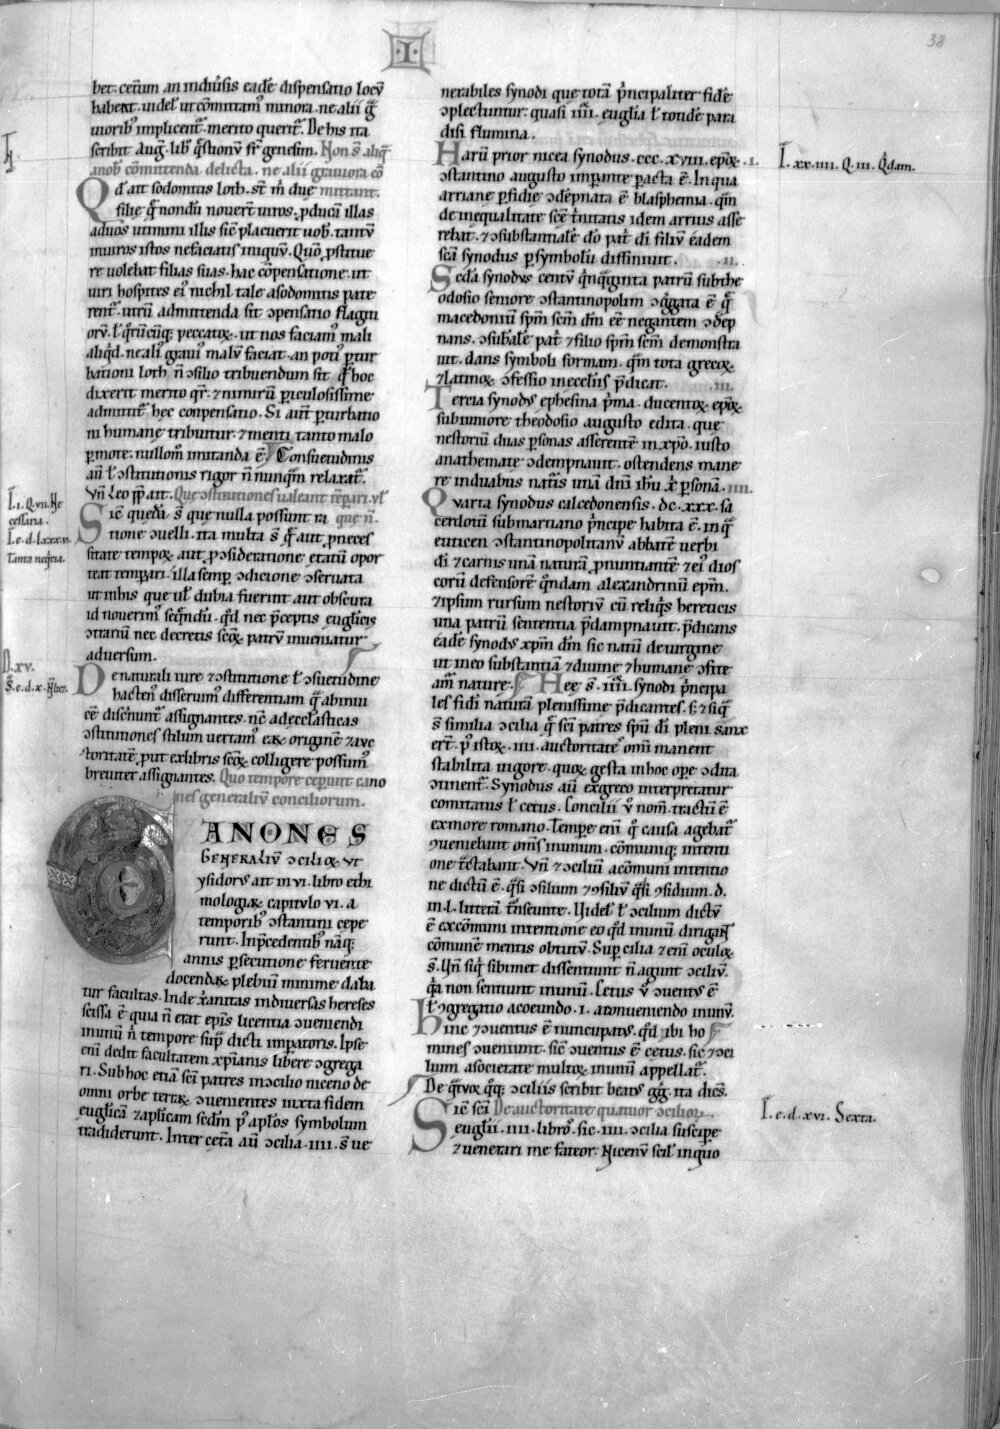 38
·I·
bet. cetum an indiuisis eadē dispensatio locū
habeat. uidelʼ ut cōmittamꝰ minora. ne alii gͣ
uioribꝰ implicentʳ. merito queritʳ. De his ita
scribit auḡ. libꝰ q̄stionū sr̄ genesim. Non s̄ aliqͣ
anobꝭ cōmittenda delicta. ne alii grauiora cō
Qđ ait sodomitis loth. st̄ m̄ due mittant.
filie q̄ nondū nouert̄ uiros. ꝓducā illas
aduos utimini illis sic̄ placuerit uobꝭ. tantū
inuiros istos nefaciatis iniquū. Quō ꝓstitue
re uolebat filias suas. hac cōpensatione. ut
uiri hospites eiꝰ nichil tale asodomitis pate
rentʳ. utrū admittenda sit ɔpensatio flagiti
orū. lʼ q̄rūcūq; peccatoꝝ. ut nos faciamꝰ mali
aliqͥd. ne aliꝰ grauiꝰ malū faciat. an potiꝰ ꝑtur
bationi loth. n̄ ɔsilio tribuendum sit qͥ hoc
dixerit merito qr̄. ⁊ nimirū ꝑiculosissime
admittitʳ hec conpensatio. Si aut̄ ꝑturbatio
ni humanę tribuitur. ⁊ menti tanto malo
ꝑmote. nullom̄ imitanda ē. Consuetudinis
aut̄ lʼ ɔstitutionis rigor n̄ nunqͣm relaxatʳ.
Vn̄ Leo pp̄ ait. Que ɔstitutiones ualeant tēꝑari. ul̄
Sic̄ quedā s̄ que nulla possunt ra que n̄.
tione ɔuelli. ita multa s̄ q̄ aut ꝓ neces
sitate tempoꝝ aut ꝓ ɔsideratione etatū opor
teat temꝑari. illa semꝑ ɔdicione ɔseruata
ut inhis que ul̄ dubia fuerint aut obscura
id nouerimꝰ seq̄ndū. qͦd nec p̄ceptis euglʼicis
ɔtrariū nec decretis scōꝝ patrū inueniatur
aduersum.
De naturali iure ⁊ ɔstitutione lʼ ɔsuetudine
hactenꝰ disseruimꝰ differentiam qͣ abinui
cē discʼnuntʳ assignantes. nc̄ adecclʼasticas
ɔstitutiones stilum uertamꝰ eaꝝ originē ⁊ auc
toritatē ꝓut exlibris scōꝝ colligere possumꝰ
breuiter assignantes. Quo tempore ceperunt cano
nes generaliū conciliorum.
CANONES
GENERALIV̄ ɔcilioꝝ. VT
ysidorꝰ ait in vi. libro ethi
mologiaꝝ capitulo vi. a
temporibꝰ ɔstantini cepe
runt. Inp̄cedentibꝰ nāq;
annis ꝑsecutione feruente
docendaꝝ plebiū minime daba
tur facultas. Inde xp̄anitas indiuersas hereses
scissa ē quia n̄ erat epīs licentia ɔueniendi
inunū n̄ tempore sup̄ dicti imꝑatoris. Ipse
enī dedit facultatem xp̄ianis libere ɔgrega
ri. Subhoc etiā sc̄i patres inɔcilio niceno de
omni orbe terraꝝ ɔuenientes iuxta fidem
euglʼicā ⁊ aplʼicam sedm̄ pꝰ aplʼos symbolum
tradiderunt. Inter cet̄a aut̄ ɔcilia. IIII. s̄ ue
nerabiles synodi que totā pͥncipaliter fidē
ɔplectuntur. quasi IIII. euglʼia lʼ totidē para
disi flumina.
Harū prior nicea synodus. ccc. xviii. epōꝝ. .I.
ɔstantino augusto imꝑante ꝑacta ē. In qua
arriane ꝑfidie ɔdēpnata ē blasphemia. qͣm
de inequalitate sc̄ę tͥnitatis idem arrius asse
rebat. ⁊ ɔsubstantialē dō patͥ dī filiū eadem
sc̄a synodus ꝑ symbolū diffiniuit. .II.
Sc̄da synodus centū qͥnq̄ginta patrū subthe
odosio seniore ɔstantinopolim ɔgͤgata ē q̄
macedoniū spm̄ scm̄ dm̄ eē negantem ɔdēp
nans. ɔsubalē patͥ ⁊ filio spm̄ scm̄ demonstra
uit. dans symboli formam. qͣm tota grecoꝝ
⁊ latinoꝝ ɔfessio inecclʼiis p̄dicat. .III.
Tercia synodꝰ ephesina pͥma. ducentoꝝ epōꝝ
subiuniore theodosio augusto edita. que
nestoriū duas ꝑsonas asserentē inxp̄o. iusto
anathemate ɔdempnauit. ostendens mane
re induabus natīs unā dn̄i ih̄u xp̄i ꝑsonā. .IIII.
Quarta synodus calcedonensis. dc. xxx. sa
cerdotū submartiano pͥncipe habita ē. in qͣ
euticen ɔstantinopolitanū abbatē uerbi
dī ⁊ carnis unā naturā ꝓnuntiantē ⁊ eiꝰ dios
corū defensorē qͦndam alexandrinū epm̄.
⁊ ipsum rursum nestoriū cū reliqͥs hereticis
una patrū sententia p̄dampnauit. p̄dicans
eadē synodꝰ xp̄m dm̄ sic natū deuirgine
ut ineo substantiā ⁊ diuine ⁊ humane ɔfite
amʳ nature. Hee s̄. IIII. synodi pͥncipa
les fidī naturā plenissime p̄dicantes. s; ⁊ siqͣ
s̄ similia ɔcilia q̄ sc̄i patres spū dī pleni sanx
ert̄. pꝰ istoꝝ. IIII. auctoritatē omī manent
stabilita uigore. quoꝝ gesta inhoc oꝑe ɔdita
ɔtinentʳ. Synodus aut̄ exgreco interpretatur
comitatus lʼ cetus. Concilii ū nom̄ tractū ē
exmore romano. Temꝑe enī qͦ causa agebatʳ
ɔueniebant om̄s inunum. cōmuniq; intenti
one tͣctabant. Vn̄ ⁊ ɔciliū acōmuni intentio
ne dictū ē. qͣsi ɔsilium ⁊ ɔsiliū qͣsi ɔsidium. d.
in. l. litterā tͣnseunte. Videlʼ lʼ ɔcilium dictū
ē excōmuni intentione eo qͦd inunū dirigant
cōmunē mentis obtutū. Suꝑcilia ⁊ enī oculoꝝ
s̄. Vn̄ siqͥ sibimet dissentiunt n̄ agunt ɔciliū.
qͣ non sentiunt inunū. Cetus ū ɔuentꝰ ē
lʼ ɔgregatio acoeundo. I. aconueniendo inunū.
hinc ⁊ ɔuentus ē nuncupatꝰ. qͦd ibi ho
mines ɔueniunt. sic̄ ɔuentus ē cetus. sic ⁊ ɔci
lium asocietate multoꝝ inunū appellatʳ.
De qͣtuor qͦq; ɔciliis scribit beatꝰ gg̃. ita dicēs.
Sic̄ sc̄i De auctoritate quatuor ɔcilioꝝ.
euglʼii. IIII. librosʼ. sic. IIII. ɔcilia suscipe
⁊ uenerari me fateor. Nicenū scilʼ inquo
I. xx. IIII. Q. III. Qͥdam.
I. e. d. xvi. Sexta.
I. I. Q. VII. Ne
cessaria.
I. e. d. Lxxx. vi.
Tanta neqͥtia.
D. xv.
S̄. e. d. x. Nʼbec.